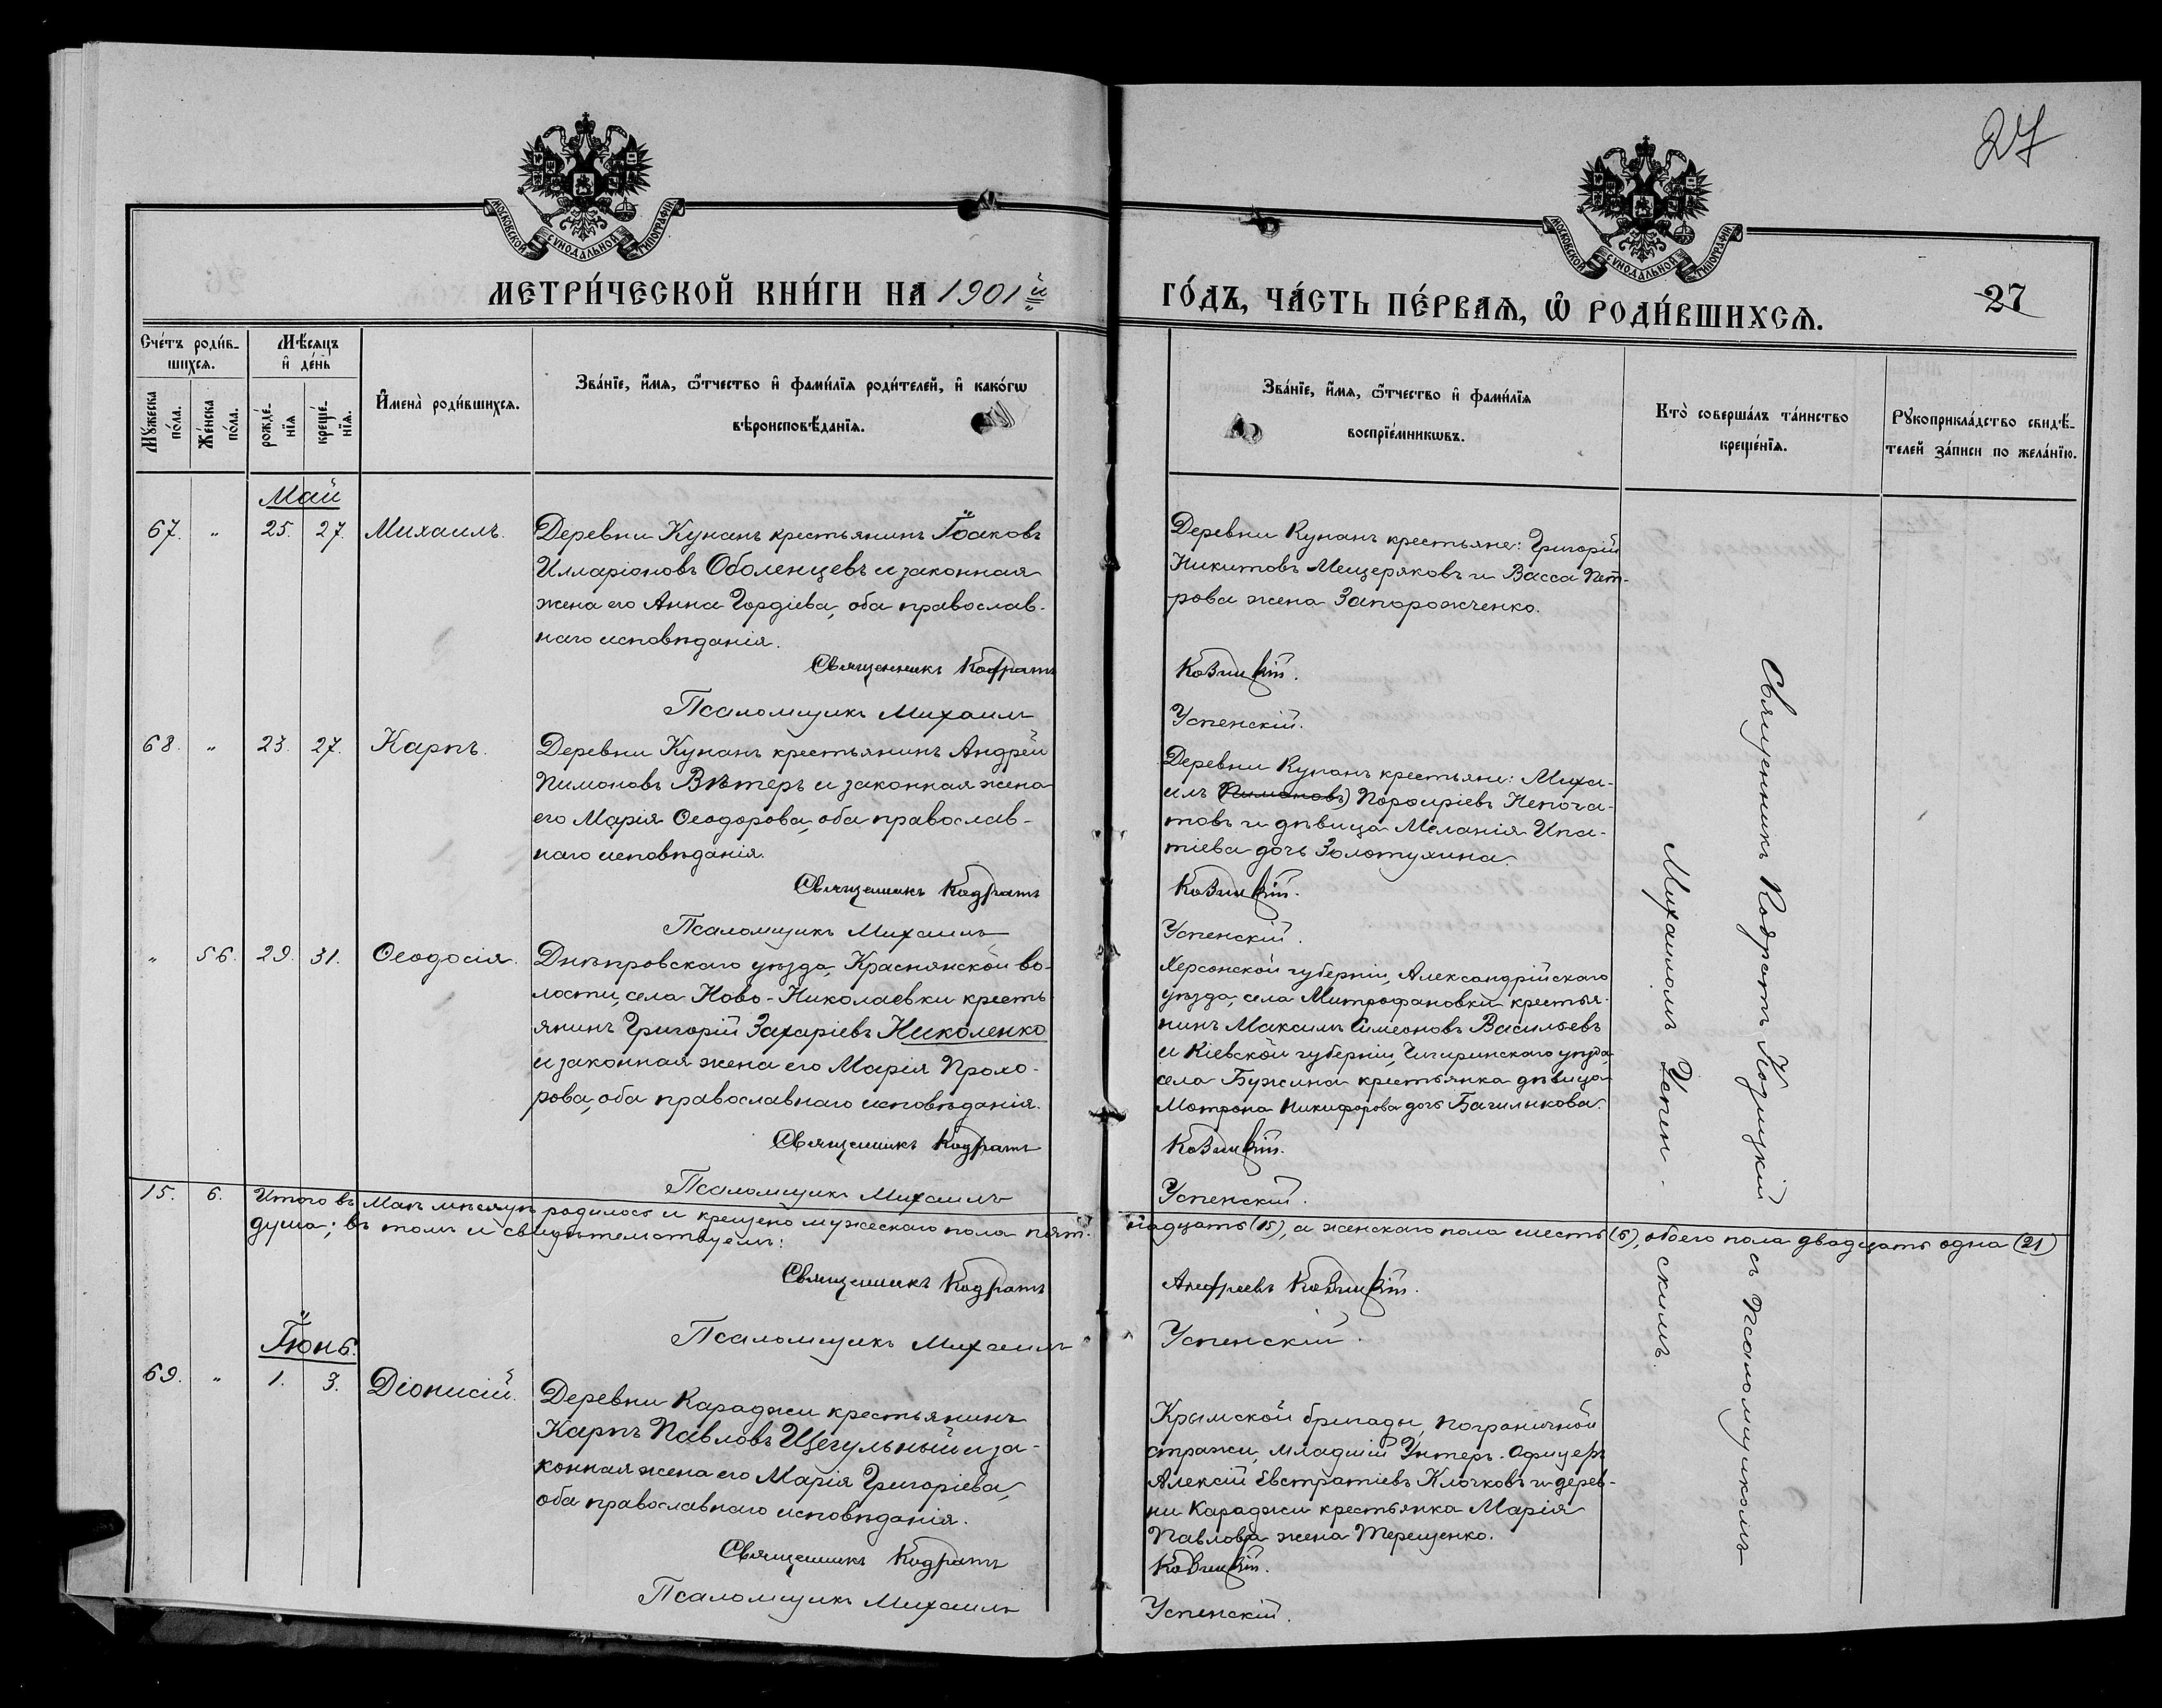 27
МОСКОВСКОЙ СѴНОДАЛЬНОЙ ТИПОГРАФІИ
МОСКОВСКОЙ СѴНОДАЛЬНОЙ ТИПОГРАФІИ
МЕТРИ́ЧЕСКОЙ КНИ́ГИ НА 1901й
ГО́ДЪ, ЧА́СТЬ ПЕ́РВАѦ, Ѡ҆ РОДИ́ВШИХСѦ.
27
Сче́тъ роди́в-
шихсѧ.
Мѣ́сѧцъ
и҆ де́нь
Мꙋ́жеска
по́ла.
Же́нска
по́ла.
рожде́-
нїѧ
креще́-
нїѧ.
И҆мена̀ роди́вшихсѧ.
Зва́нїе, и҆́мѧ, ѻ҆́тчество и҆ фами́лїѧ роди́телей, и҆ како́гѡ
вѣроисповѣ́данїѧ.
Зва́нїе, и҆́мѧ, ѻ҆́тчество и҆ фами́лїѧ
воспрїе́мникѡвъ.
Кто̀ соверша́лъ та́инство
креще́нїѧ.
Рꙋкоприкла́дство свидѣ́-
телей за́писи по жела́нїю.
Май
67. " 25. 27. Михаилъ.
Деревни Кунанъ крестьянинъ Іоаковъ
Илларіоновъ Оболенцевъ и законная
жена его Анна Гордіева, оба православ-
наго исповѣданія.
Священникъ Кодратъ
Псаломщикъ Михаилъ
Деревни Кунанъ крестьяне: Григорій
Никитовъ Мещеряковъ и Васса Пет-
рова жена Запорожченко.
Козицкій.
Успенскій.
68. " 23. 27. Карпъ.
Деревни Кунанъ крестьянинъ Андрей
Пимоновъ Вѣтеръ и законная жена
его Марія Ѳеодорова, оба православ-
наго исповѣданія.
Священникъ Кодратъ
Псаломщикъ Михаилъ
Деревни Кунанъ крестьяне: Миха-
илъ (Пимоновъ) Порфиріевъ Непоча-
товъ и дѣвица Меланія Ипа-
тіева дочь Золотухина.
Козицкій.
Успенскій.
" 56. 29. 31. Ѳеодосія.
Днѣпровскаго уѣзда, Краснянской во-
лости, села Ново-Николаевки кресть-
янинъ Григорій Захаріевъ Николенко
и законная жена его Марія Прохо-
рова, оба православнаго исповѣданія.
Священникъ Кодратъ
Псаломщикъ Михаилъ
Херсонской губерніи, Александрійскаго
уѣзда, села Митрофановки крестья-
нинъ Максимъ Симеоновъ Васильевъ
и Кіевской губерніи, Чигиринскаго уѣзда,
села Бужина крестьянка дѣвица
Мотрона Никифорова дочь
Козицкій.
Успенскій.
15. 6. Итого въ Маѣ мѣсяцѣ родилось и крещено мужескаго пола пят-
надцать (15), а женскаго пола шесть (6), обоего пола двадцать одна (21)
душа; въ томъ и свидѣтельствуемъ:
Священникъ Кодратъ
Андреевъ Козицкій.
Псаломщикъ Михаилъ
Успенскій.
Іюнь.
69. " 1. 3. Діонисій.
Деревни Караджи крестьянинъ
Карпъ Павловъ Щегульный и за-
конная жена его Марія Григоріева,
оба православнаго исповѣданія.
Священникъ Кодратъ
Псаломщикъ Михаилъ
Крымской бригады, пограничной
стражи, младшій Унтеръ-Офицеръ
Алексій Евстратіевъ Клочковъ и дерев-
ни Караджи крестьянка Марія
Павлова жена Терещенко.
Козицкій.
Успенскій.
Священникъ Кодратъ Козицкій съ Псаломщикомъ
Михаиломъ Успен-скимъ.